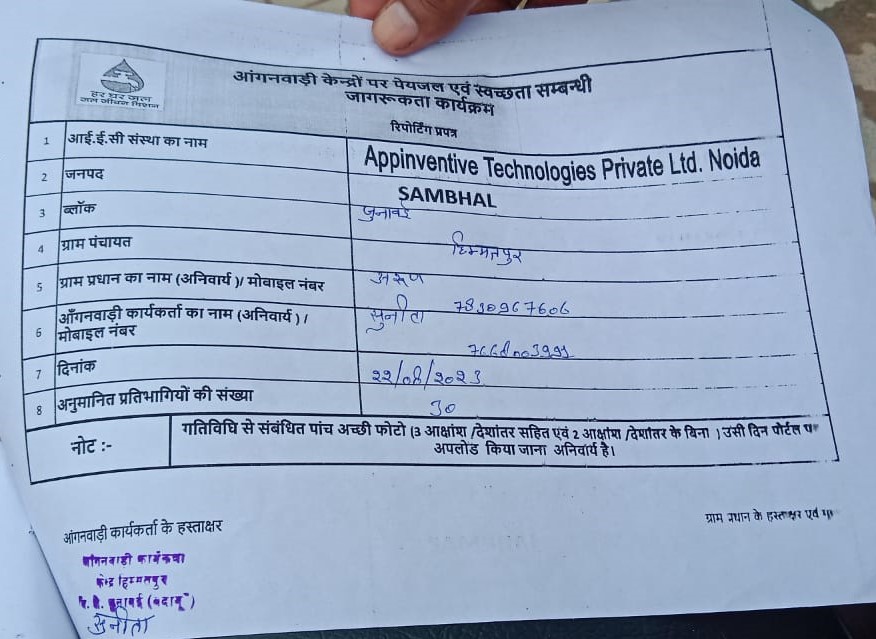 हर घर जल
जल जीवन मिशन
आंगनवाड़ी केन्द्रों पर पेयजल एवं स्वच्छता सम्बन्धी
जागरूकता कार्यक्रम
रिपोर्टिंग प्रपत्र
1 आई.ई.सी संस्था का नाम Appinventive Technologies Private Ltd. Noida
2 जनपद SAMBHAL
3 ब्लॉक जुनावई
4 ग्राम पंचायत हिम्मतपुर
5 ग्राम प्रधान का नाम (अनिवार्य )/ मोबाइल नंबर अरूण
6 आँगनवाड़ी कार्यकर्ता का नाम (अनिवार्य ) / सुनीता
मोबाइल नंबर
7 दिनांक 22/08/2023
8 अनुमानित प्रतिभागियों की संख्या 30
नोट :- गतिविधि से संबंधित पांच अच्छी फोटो (3 आक्षांश /देशांतर सहित एवं 2 आक्षांश /देशांतर के बिना ) उसी दिन पोर्टल
अपलोड किया जाना अनिवार्य है।
आंगनवाड़ी कार्यकर्ता के हस्ताक्षर
ग्राम प्रधान के हस्ताक्षर एवं
केन्द्र हिम्मतपुर
जुनावई (बदायूँ)
सुनीता